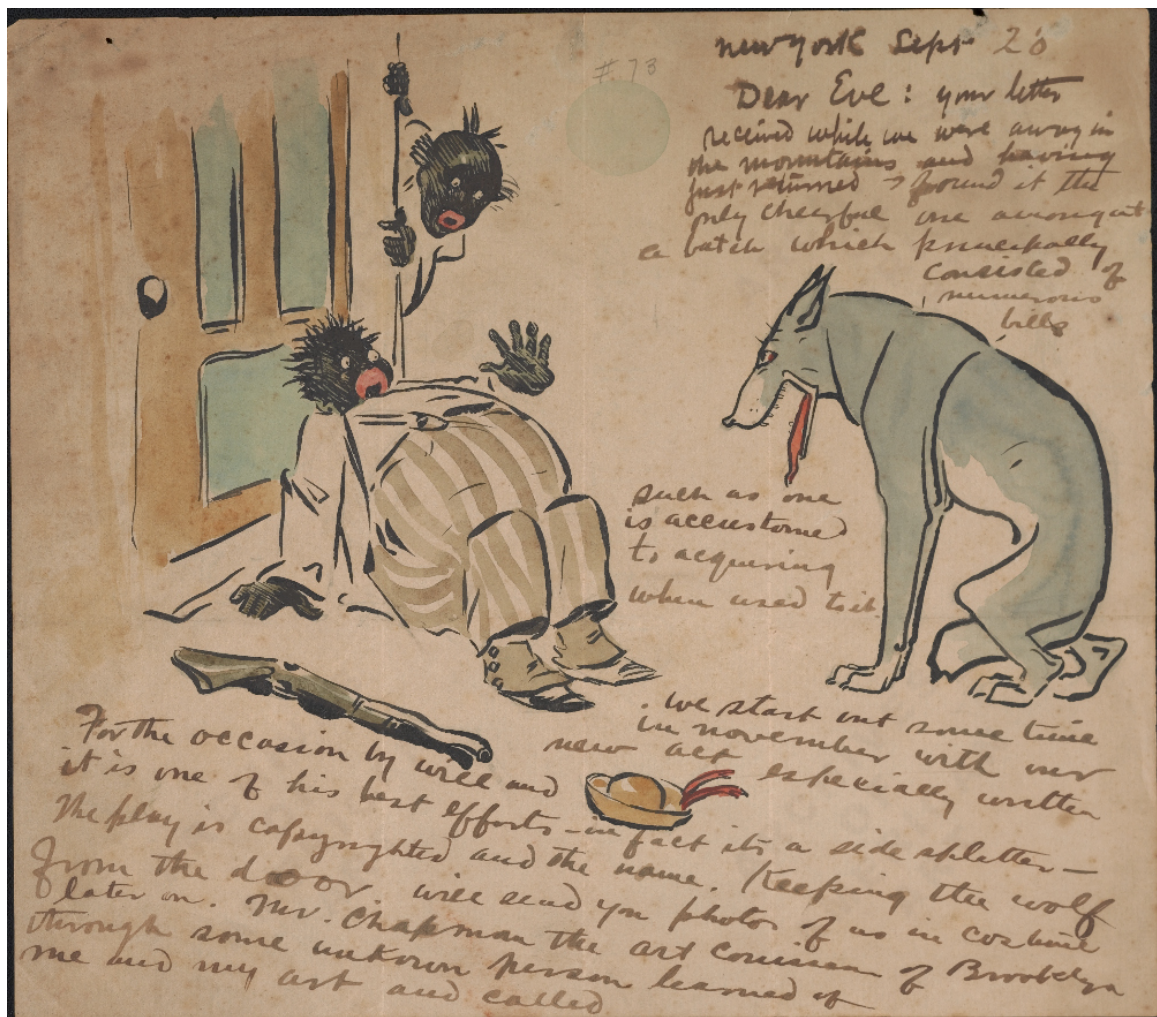 # 73
new york Sept 26
Dear Eve: your letter
received while we were away in
the mountains and having
just returned I found it the
only cheerful one amongst
a batch which principally
consisted of
numerous
bills
such as one
is accustomed
to acquiring
when used to it
we start out some time
in november with our
new act especially written
For the occasion by will and
it is one of his best efforts - in fact its a side splitter -
The play is copyrighted and the name. Keeping the wolf
from the door will send you photos of us in costume
later on. Mr. Chapman the art of Brooklyn
through some unkown person learned of
me and my art and called